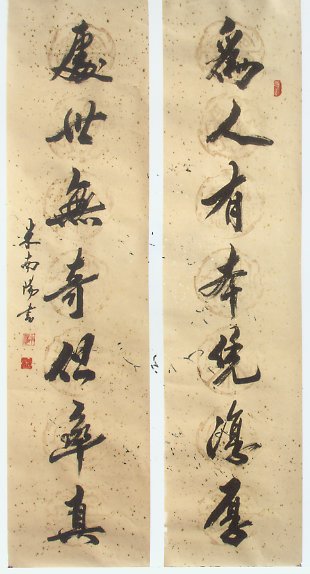 為人有本凭厚
處世無奇但率真
朱南陽書